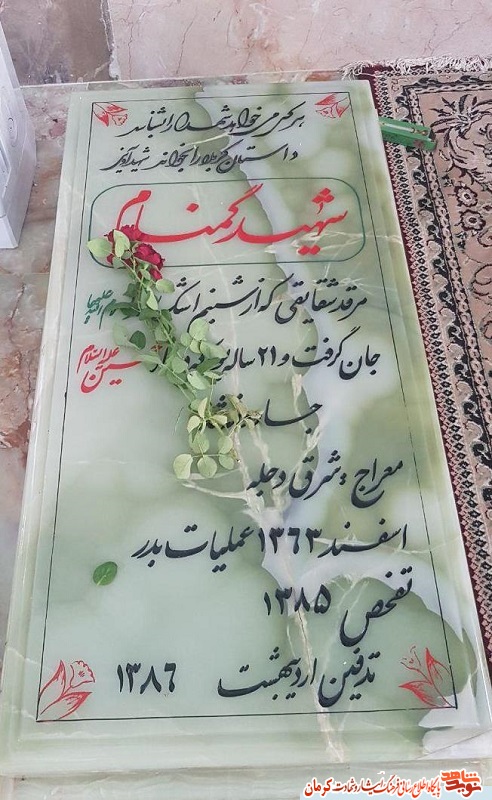 هر کس می‌خواهد شهدا را بشناسد
داستان کربلا را بخواند شهید آوینی
شهید گمنام
مرقد شقایقی که از شبنم اشک
جان گرفت و ۲۱ ساله
علیه السلام
معراج: شرق دجله
اسفند ۱۳۶۳ عملیات بدر
تفحص ۱۳۸۵
تدفین اردیبهشت ۱۳۸۶
نوید شاهد پایگاه اطلاع رسانی فرهنگ ایثار و شهادت کرمان